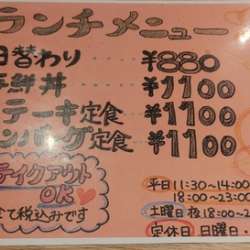 ランチメニュー
日替わり ¥880
海鮮丼 ¥1100
ステーキ定食 ¥1100
ハンバーグ定食 ¥1100
テイクアウト
OK
全て税込みです
平日11:30~14:00
18:00~23:00
土曜日 18:00~
定休日 日曜日・